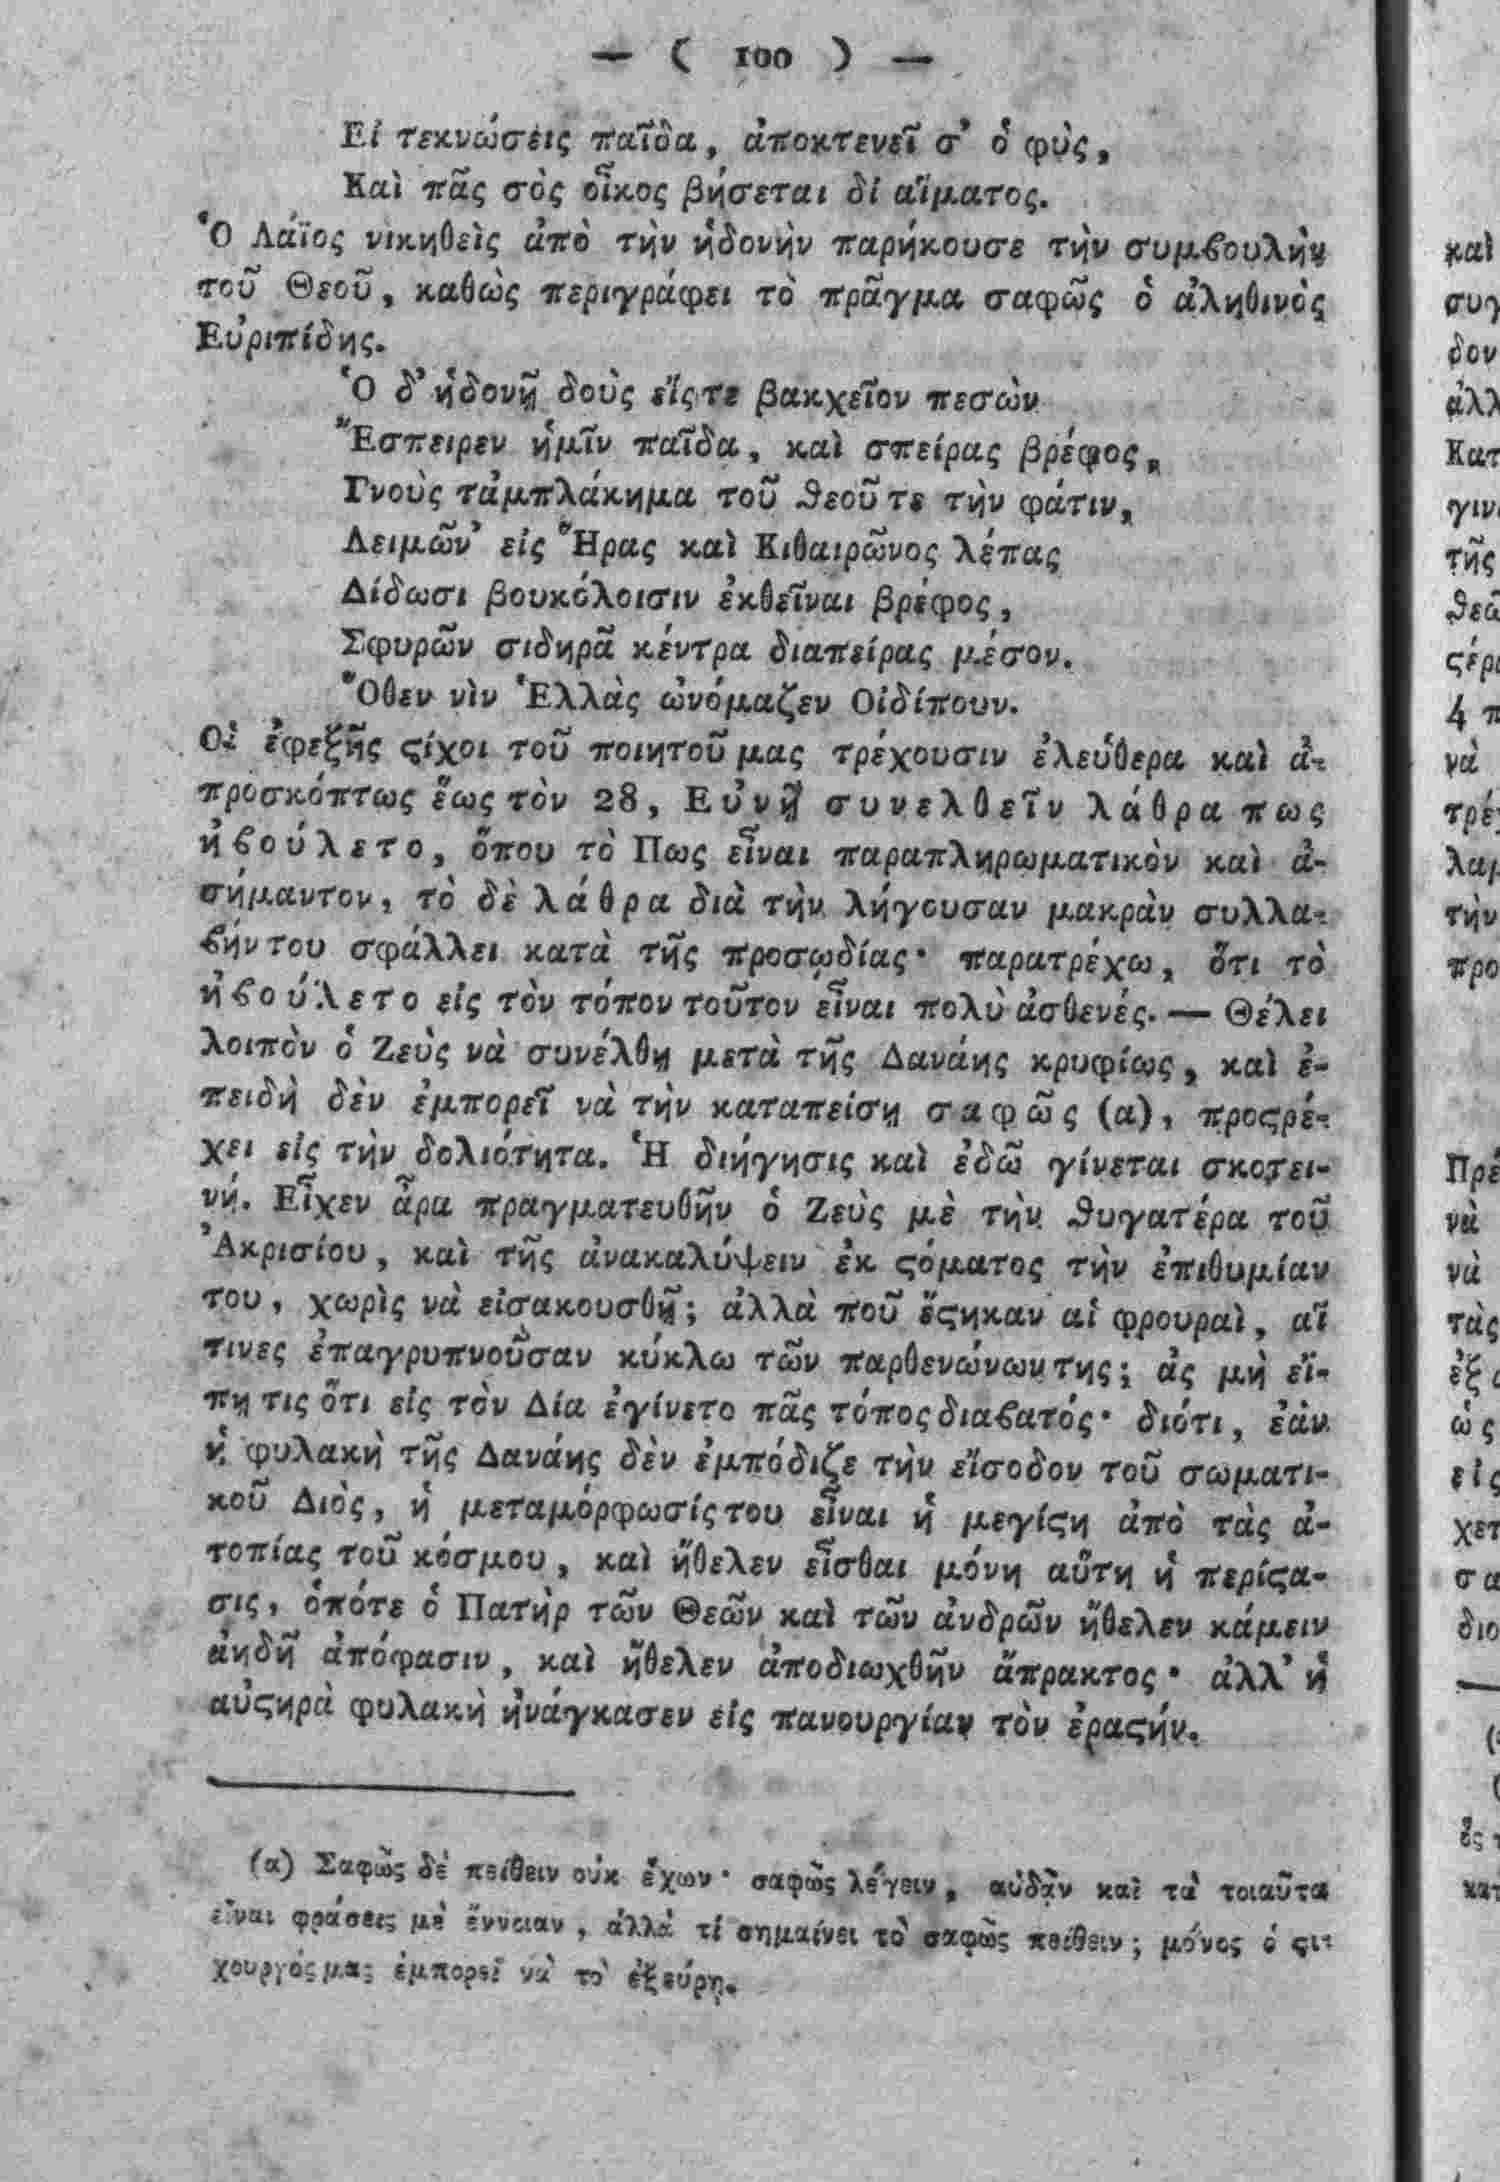 — ( 100 ) —
Εἰ τεκνώσεις παῖδα, ἀποκτενεῖ σ' ὁ φὺς,
Καὶ πᾶς σὸς οἶκος βήσεται δί αἵματος.
Ὁ Λάϊος νικηθεὶς ἀπὸ τὴν ἡδονὴν παρήκουσε τὴν συμβουλὴν
τοῦ Θεοῦ, καθὼς περιγράφει τὸ πρᾶγμα σαφῶς ὁ ἀληθινὸς
Εὐριπίδης.
Ὁ δ' ἡδονῇ δοὺς εἴς τε βακχεῖον πεσὼν
Ἔσπειρεν ἡμῖν παῖδα, καὶ σπείρας βρέφος,
Γνοὺς τἀμπλάκημα τοῦ ϑεοῦ τε τὴν φάτιν,
Λειμῶν' εἰς Ἥρας καὶ Κιθαιρῶνος λέπας
Δίδωσι βουκόλοισιν ἐκθεῖναι βρέφος,
Σφυρῶν σιδηρᾶ κέντρα διαπείρας μέσον.
Ὅθεν νὶν Ἑλλὰς ὠνόμαζεν Οἰδίπουν.
Οἱ ἐφεξῆς ϛίχοι τοῦ ποιητοῦ μας τρέχουσιν ἐλεύθερα καὶ ἀ-
προσκόπτως ἕως τὸν 28, Εὐνῇ συνελθεῖν λάθρα πως
ἠβούλετο, ὅπου τὸ Πως εἶναι παραπληρωματικὸν καὶ ἀ-
σήμαντον, τὸ δὲ λάθρα διὰ τὴν λήγουσαν μακρὰν συλλα-
βήν του σφάλλει κατὰ τῆς προσῳδίας· παρατρέχω, ὅτι τὸ
ἠβούλετο εἰς τὸν τόπον τοῦτον εἶναι πολὺ ἀσθενές. — Θέλει
λοιπὸν ὁ Ζεὺς νὰ συνέλθῃ μετὰ τῆς Δανάης κρυφίως, καὶ ἐ-
πειδὴ δὲν ἐμπορεῖ νὰ τὴν καταπείσῃ σαφῶς (α), προςρέ-
χει εἰς τὴν δολιότητα. Ἡ διήγησις καὶ ἐδῶ γίνεται σκοτει-
νή. Εἶχεν ἆρα πραγματευθῆν ὁ Ζεὺς μὲ τὴν ϑυγατέρα τοῦ
Ἀκρισίου, καὶ τῆς ἀνακαλύψειν ἐκ ϛόματος τὴν ἐπιθυμίαν
του, χωρὶς νὰ εἰσακουσθῇ; ἀλλὰ ποῦ ἔϛηκαν αἱ φρουραὶ, αἵ
τινες ἐπαγρυπνοῦσαν κύκλω τῶν παρθενώνων της; ἀς μὴ εἴ-
πῃ τις ὅτι εἰς τὸν Δία ἐγίνετο πᾶς τόπος διαβατός· διότι, ἐὰν
ἡ φυλακὴ τῆς Δανάης δὲν ἐμπόδιζε τὴν εἴσοδον τοῦ σωματι-
κοῦ Διὸς, ἡ μεταμόρφωσίς του εἶναι ἡ μεγίϛη ἀπὸ τὰς ἀ-
τοπίας τοῦ κόσμου, καὶ ἤθελεν εἶσθαι μόνη αὕτη ἡ περίϛα-
σις, ὁπότε ὁ Πατὴρ τῶν Θεῶν καὶ τῶν ἀνδρῶν ἤθελεν κάμειν
ἀηδῆ ἀπόφασιν, καὶ ἤθελεν ἀποδιωχθῆν ἄπρακτος· ἀλλ' ἡ
αὐϛηρὰ φυλακὴ ἠνάγκασεν εἰς πανουργίαν τὸν ἐραϛήν.
(α) Σαφῶς δὲ πείθειν οὐκ ἔχων· σαφῶς λέγειν, αὐδᾶν καὶ τὰ τοιαῦτα
εἶναι φράσεις μὲ ἔννοιαν, ἀλλὰ τί σημαίνει τὸ σαφῶς πείθειν; μόνος ὁ ϛι-
χουργός μας ἐμπορεῖ νὰ τὸ ἐξεύρῃ.